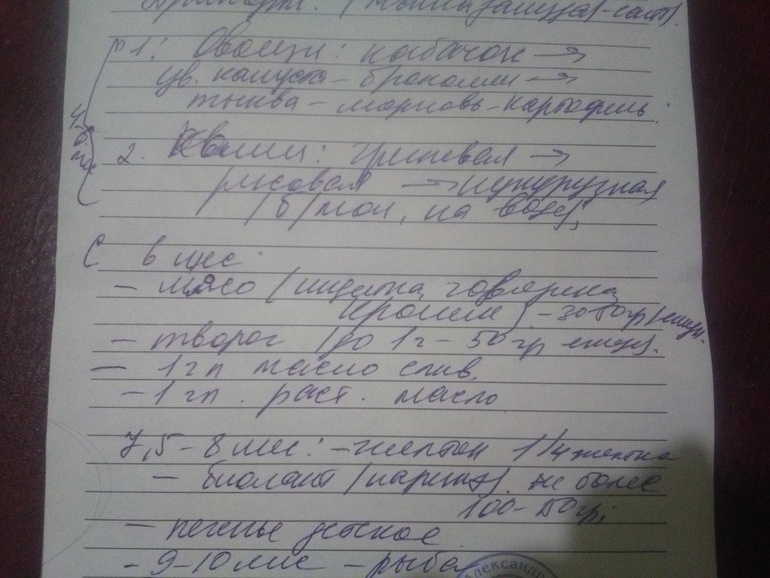 Прикорм:
1. Овощи: кабачок →
цв. капуста – брокколи →
тыква – морковь – картофель.
4-6 мес
2. Каши: гречневая →
рисовая → кукурузная
/б/мол, на воде/;
С 6 мес
– мясо /индейка, говядина,
кролик/ – 30-50 гр/ежедн.
– творог /до 1 г – 50 гр ежедн.
– 1 ч л масло слив.
– 1 ч л раст. масло
7,5 – 8 мес: – желток 1/4 желтка
– биолакт не более
100-150 гр;
– печенье детское
– 9-10 мес – рыба
Александр